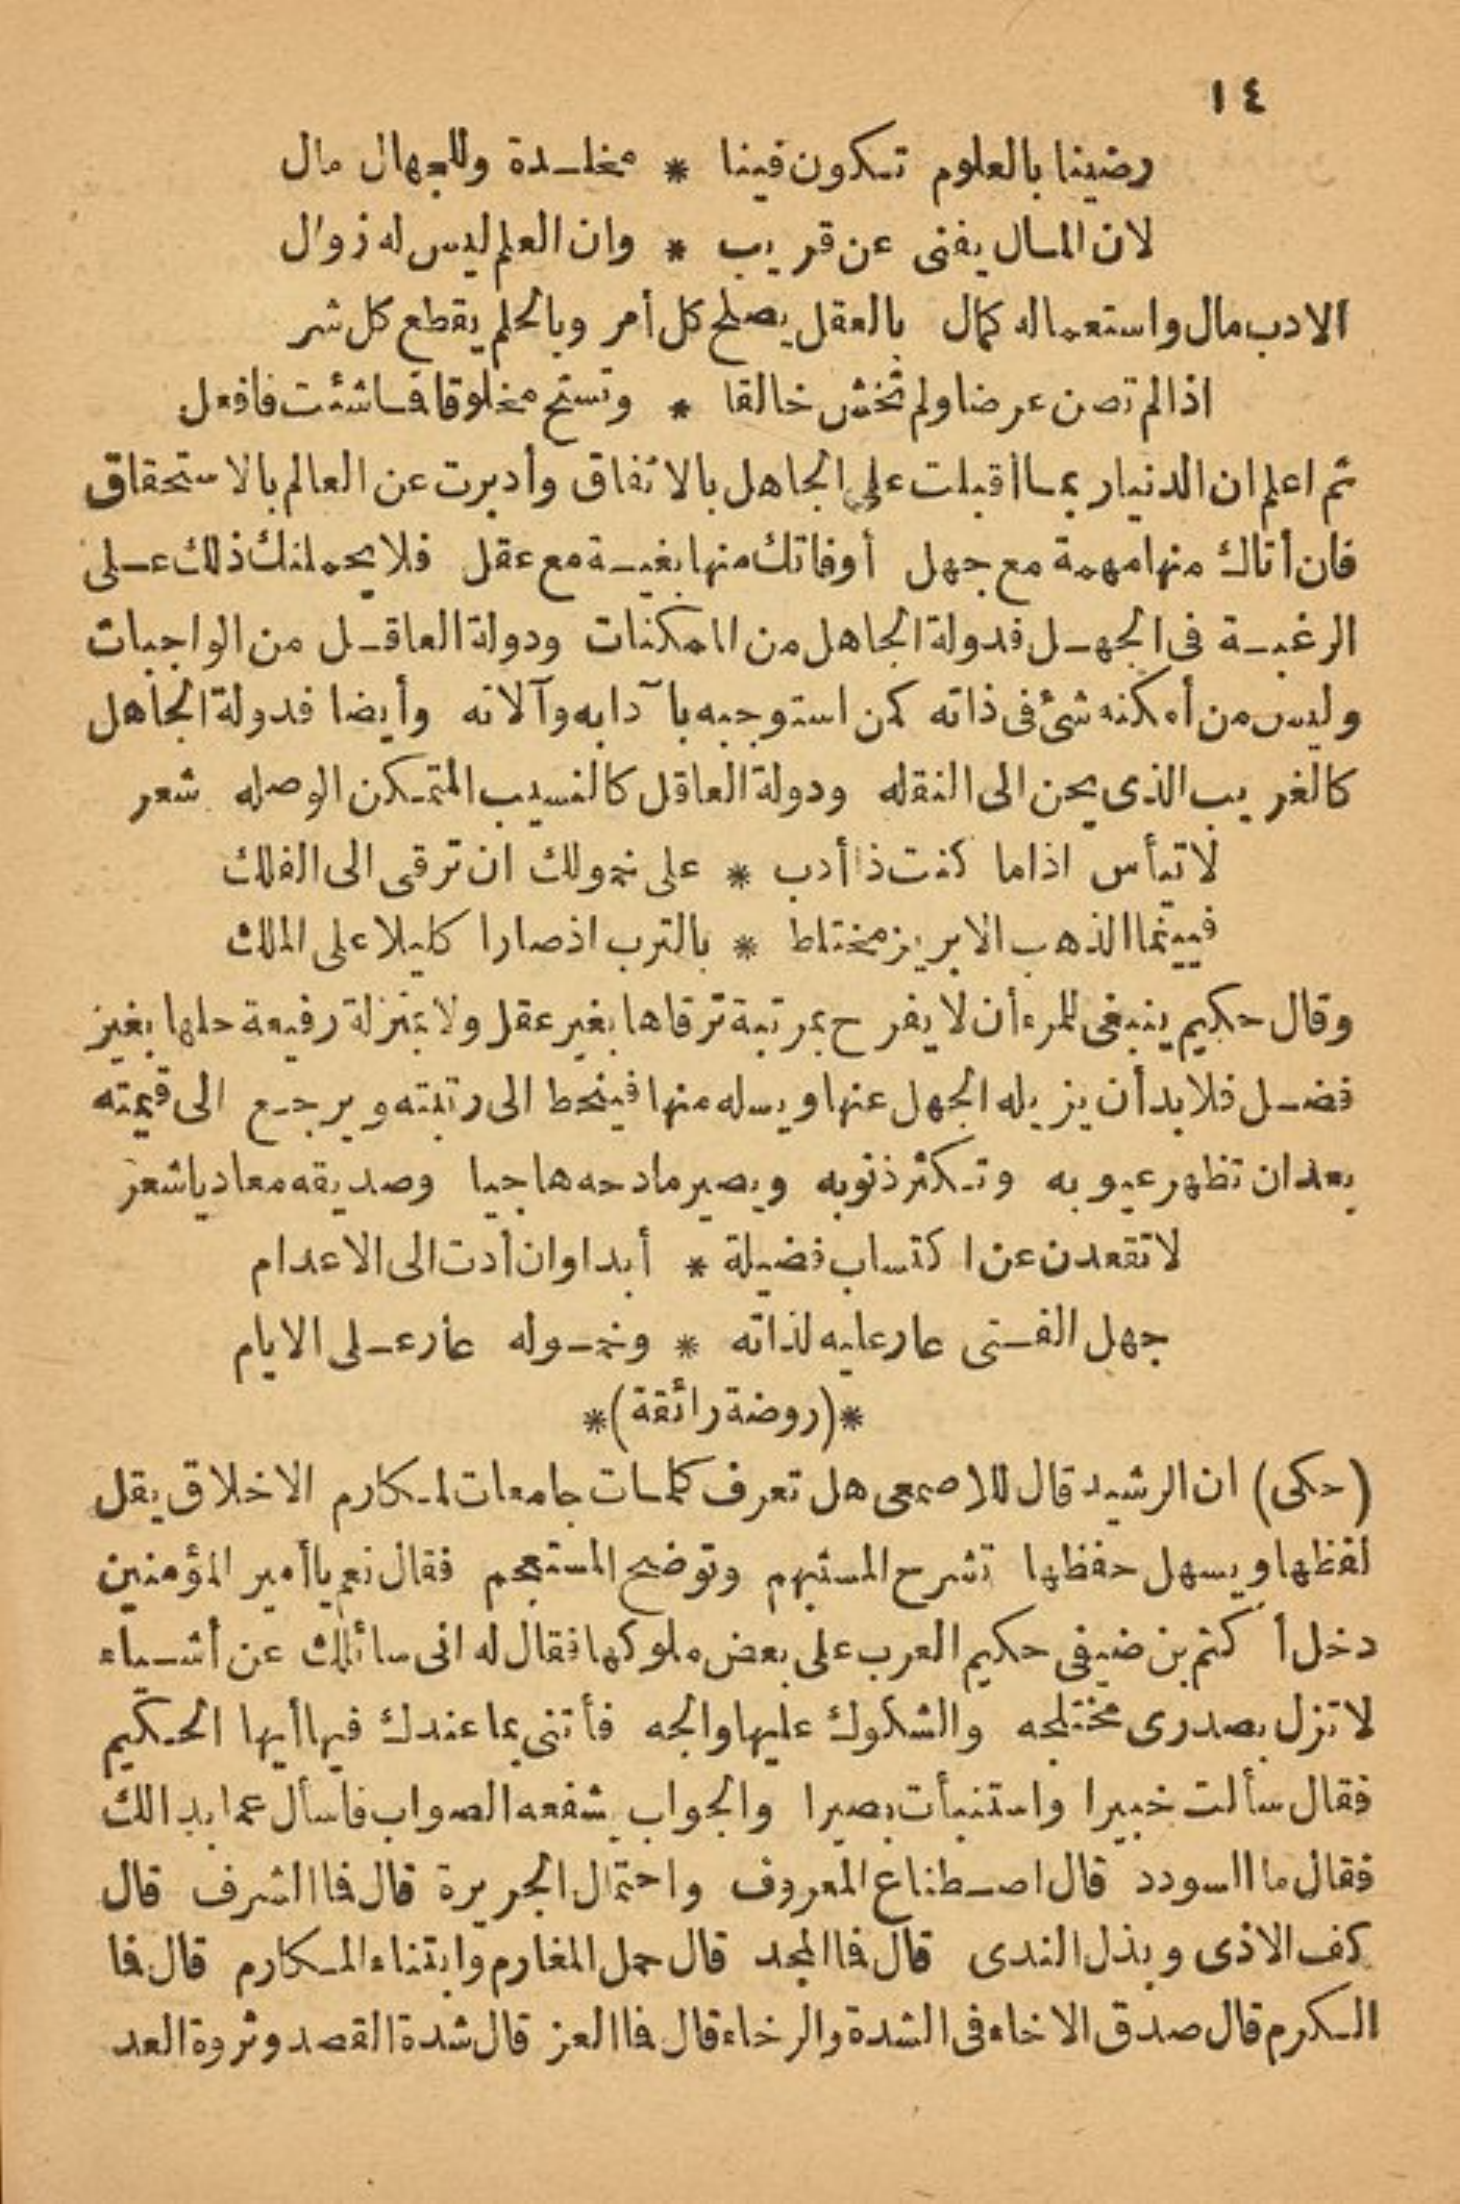 ١٤
رضينا بالعلوم تكون فينا * مخلدة وللجهال مال
لان المال يفنى عن قريب * وان العلم ليس له زوال
الادب مال واستعماله كمال بالعقل يصلح كل أمر وبالحلم يقطع كل شر
اذا لم تصن عرضا ولم تخش خالقا * وتستح مخلوقا فماشئت فافعل
ثم اعلم ان الدنيا ربما أقبلت على الجاهل بالاتفاق وأدبرت عن العالم بالاستحقاق
فان أتاك منها مهمة مع جهل أوفاتك منها بغية مع عقل فلا يحملنك ذلك على
الرغبة فى الجهل فدولة الجاهل من الممكنات ودولة العاقل من الواجبات
وليس من أمكنه شئ فى ذاته كمن استوجبه بآدابه وآلاته وأيضا فدولة الجاهل
كالغريب الذى يحن الى النقله ودولة العاقل كالنسيب المتمكن الوصله شعر
لا تيأس اذا ما كنت ذا أدب * على خمولك ان ترقى الى الفلك
فبينما الذهب الابريز مختلط * بالترب اذ صار اكليلا على الملك
وقال حكيم ينبغى للمرء أن لا يفرح بمرتبة ترقاها بغير عقل ولا بمنزلة رفيعة حلها بغير
فضل فلابد أن يزيله الجهل عنها ويسله منها فينحط الى رتبته ويرجع الى قيمته
بعد ان تظهر عيوبه وتكثر ذنوبه ويصير مادحه هاجيا وصديقه معاديا شعر
لا تقعدن عن اكتساب فضيلة * أبدا وان أدت الى الاعدام
جهل الفتى عار عليه لذاته * وخموله عار على الايام
*(روضة رائقة)*
(حكى) ان الرشيد قال للاصمعى هل تعرف كلمات جامعات لمكارم الاخلاق يقل
لفظها ويسهل حفظها تشرح المستبهم وتوضح المستعجم فقال نعم يا أمير المؤمنين
دخل أكثم بن ضيفى حكيم العرب على بعض ملوكها فقال له انى سائلك عن أشياء
لا تزل بصدرى مختلجه والشكوك عليها والجه فأتنى بما عندك فيها أيها الحكيم
فقال سألت خبيرا واستنبأت بصيرا والجواب يشفعه الصواب فاسأل عما بدا لك
فقال ما السودد قال اصطناع المعروف واحتمال الجريرة قال فما الشرف قال
كف الاذى وبذل الندى قال فما المجد قال حمل المغارم وابتناء المكارم قال فما
الكرم قال صدق الاخاء فى الشدة والرخاء قال فما العز قال شدة القصد وثروة العد